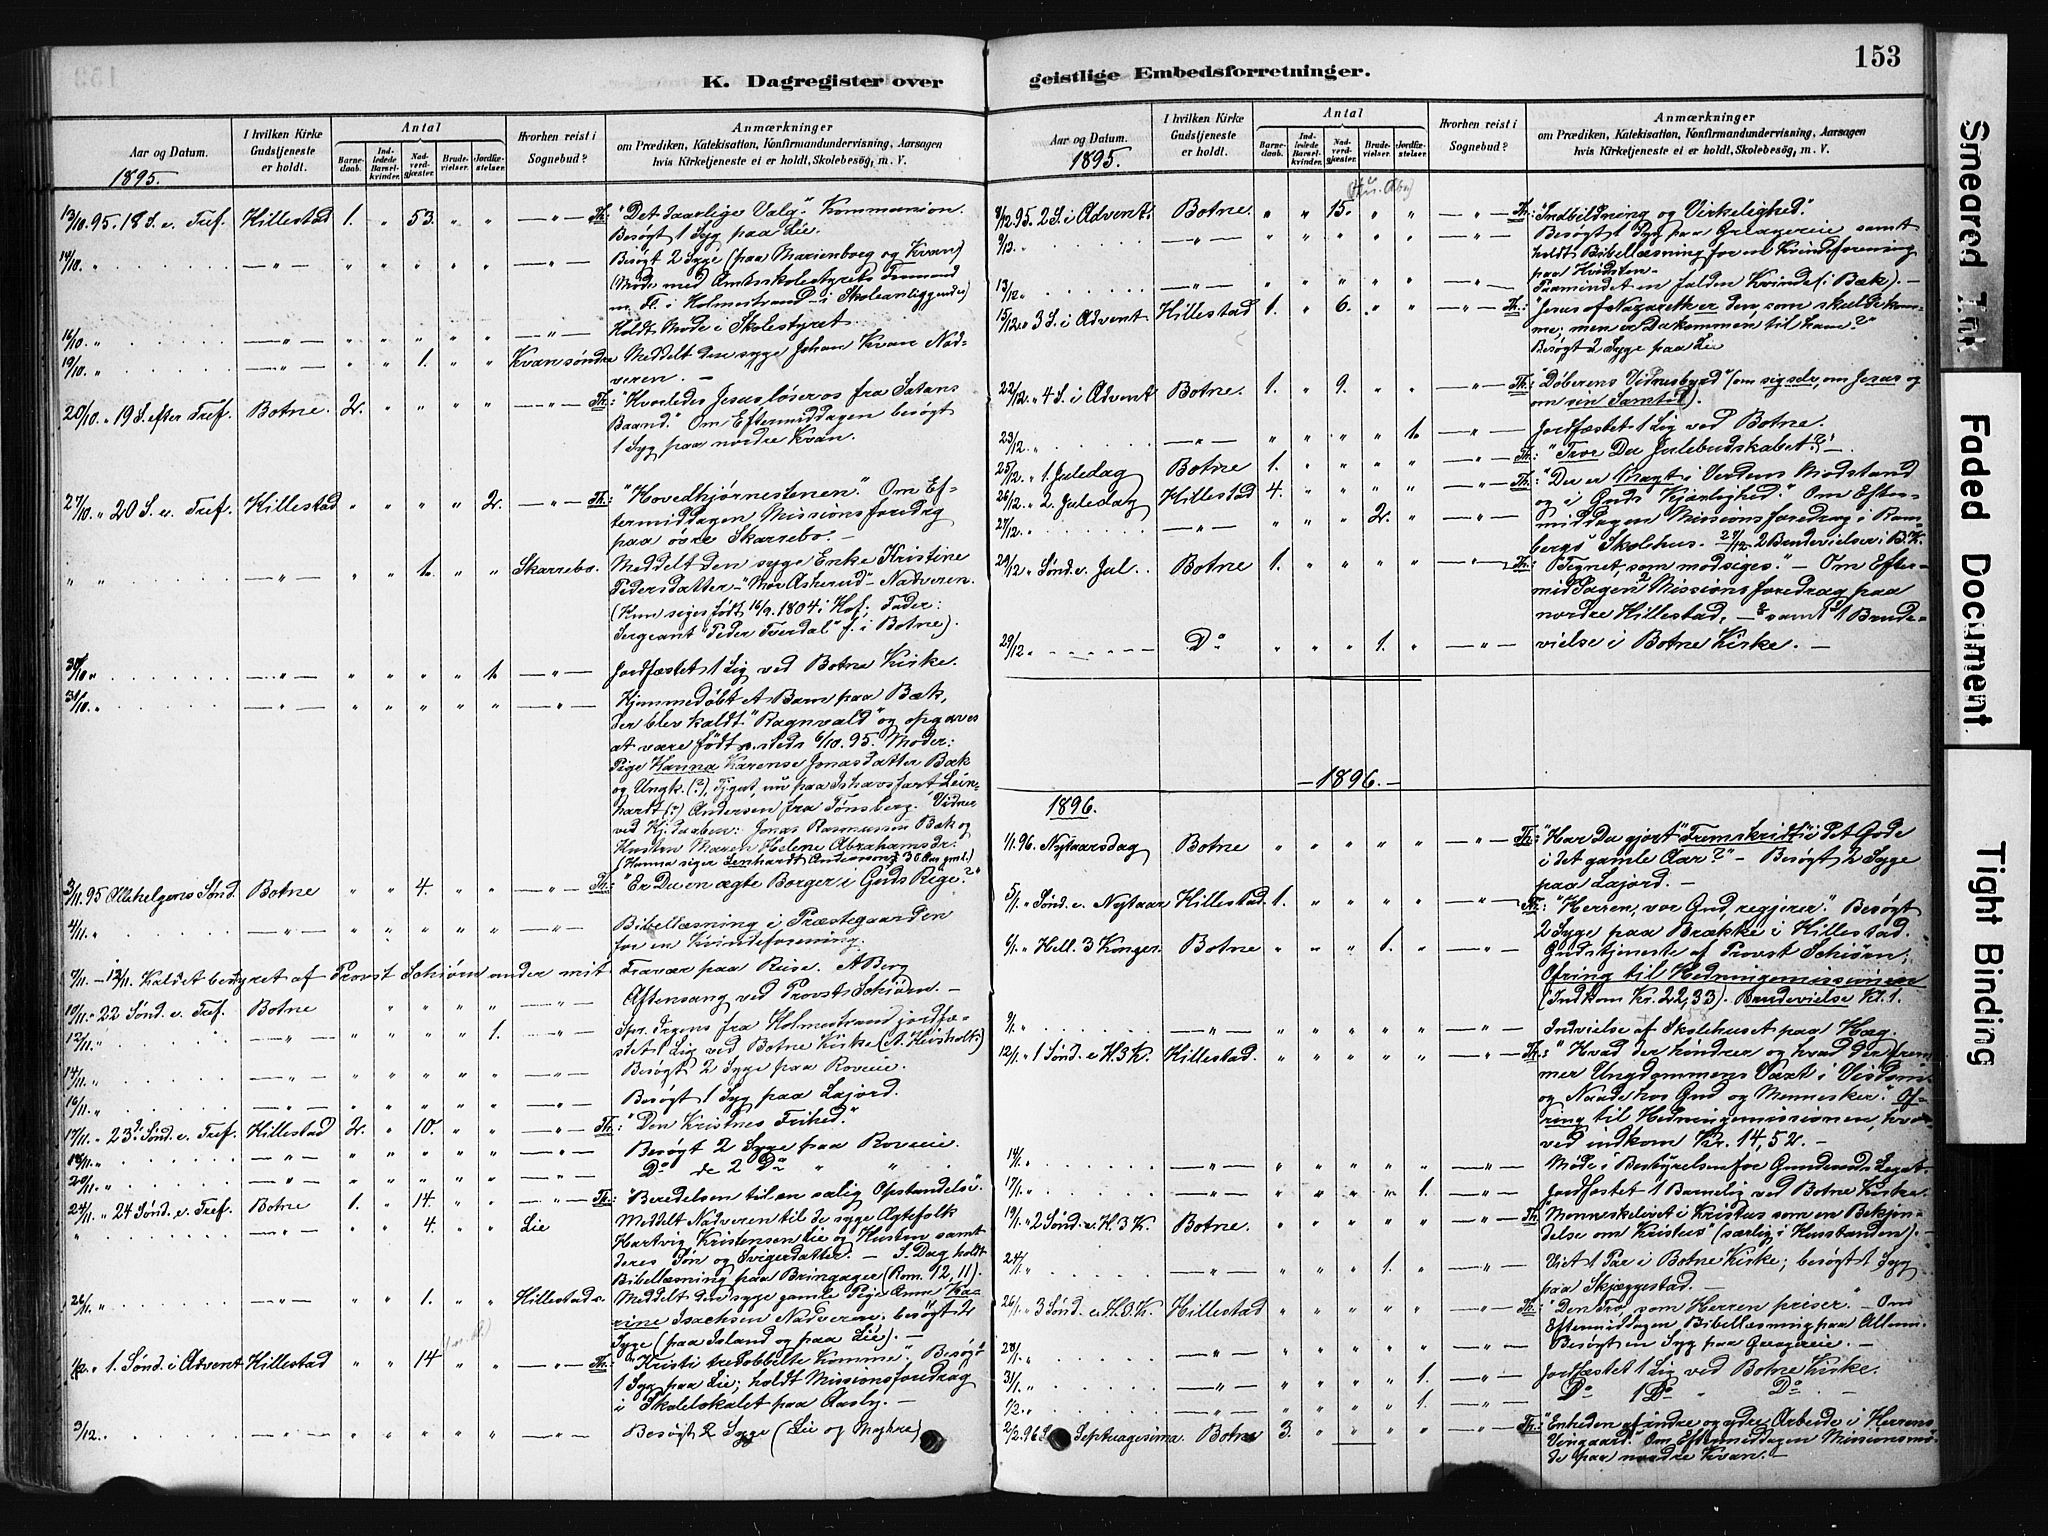 153
K. Dagregister over geistlige Embedsforretninger.
Aar og Datum.
1895.
I hvilken Kirke Gudstjeneste er holdt.
Antal
Barnedaab.
Indledede Barselkvinder.
Nadverdgjester.
Brudevielser.
Jordfæstelser.
Hvorhen reist i Sognebud?
Anmærkninger
om Prædiken, Katekisation, Konfirmandundervisning, Aarsagen
hvis Kirketjeneste ei er holdt, Skolebesøg, m. V.
13/10. 95. 18 S. e. Tref. Hillestad 1. " 53. " " — " — Th: "Det daarlige Valg." Kommunion.
Besøgt 1 Syg paa Lie.
14/10. " — " — " " " " " — " — Besøgt 2 Syge (paa Marienborg og Kvan)
(Møde med Amtsskolestyrets Formand
m. Fl. i Holmestrand i Skoleanliggender)
16/10. " — " — " " " " " — " — Holdt Møde i Skolestyret.
19/10. " — " — " " 1. " " Kvan søndre Meddelt den syge Johan Kvan Nad-
veren. —
20/10. " 19 S. efter Tref. Botne. 2. " " " " — " — Th: "Hvorledes Jesus løser os fra Satans
Baand." Om Eftermiddagen besøgt
1 Syg paa nordre Kvan.
27/10. " 20 S. e. Tref. Hillestad " " " " 2. — " — Th: "Hovedhjørnestenen." Om Ef-
termiddagen Missionsforedrag
paa øvre Skarrebo. —
" " — " — " " 1. " " Skarrebo. Meddelt den syge Enke Kristine
Pedersdatter - "Mor Asherud" - Nadveren.
(Hun siges født 16/9. 1804 i Hof; Fader:
Sergeant "Peder Tverdal" f. i Botne).
30/10 " — " — " " " " 1. — " — Jordfæstet 1 Lig ved Botne Kirke.
31/10. " — " — " " " " " — " — Hjemmedøbt et Barn paa Bæk,
der blev kaldt "Ragnvald" og opgaves
at være født s. steds 6/10. 95. Moder:
Pige Hanna Karense Jonasdatter Bæk
og Ungk. (?), Tjgut, nu paa Ishavsfart Lein-
hardt (?) Andersen fra Tønsberg. Vidner
ved Hj. daaben: Jonas Rasmussen Bæk og
Hustru Maren Helene Abrahamsdr.
(Hanna siger Lenhardt Andersen, 30 Aar gml.)
3/11. 95 Allehelgens Sønd. Botne " " 4. " " — " — Th: "Er Du en ægte Borger i Guds Rige?"
4/11. " — " — " " " " " — " — Bibellæsning i Præstegaarden
for en Kvindeforening.
7/11. — 13/11. Kaldet bestyret af Provst Schiørn under mit Fravær paa Reise. A Berg
10/11. " 22 Sønd. e. Tref. Botne " " " " — " — Aftensang ved Provst Schiørn. —
12/11. " — " — " " " " 1. — " — Spr. Irgens fra Holmestrand jordfæ-
stet 1 Lig ved Botne Kirke
14/11. " — " — " " " " " — " — Besøgt 2 Syge paa Roveie.
16/11. " — " — " " " " " — " — Besøgt 1 Syg paa Lajord.
17/11. " 23. Sønd. e. Tref. Hillestad 2. " 10. " " — " — Th: "Den Kristnes Frihed."
18/11. " — " — " " " " " — " — Besøgt 2 Syge paa Roveie.
20/11. " — " — " " " " " — " — Do de 2 Do " "
24/11. " 24 Sønd. e. Tref. Botne 1. " 14. " " — " — Th: "Beredelsen til en salig Opstandelse".
" — " — " " 4. " " Lie Meddelt Nadveren til de syge Ægtefolk
Hartvig Kristensen Lie og Hustru samt
deres Søn og Svigerdatter. — S. Dag holdt
Bibellæsning paa Bringager (Rom. 12, 11).
26/11. " — " — " " 1. " " Hillestad Meddelt den syge gamle Pige Anne Ka-
rine Isachsen Nadveren; besøgt 2
Syge (paa Island og paa Lie). —
1/12. " 1. Sønd. i Advent Hillestad " " 14 " " — " — Th: "Kristi tredobbelte Komme". Besøgt
1 Syg paa Lie; holdt Missionsforedrag
i Skolelokalet paa Aasby. —
3/12. " — " — " " " " " — " — Besøgt 2 Syge (Lie og Myhre)
Aar og Datum.
1895.
I hvilken Kirke Gudstjeneste er holdt.
Antal
Barnedaab.
Indledede Barselkvinder.
Nadverdgjester.
Brudevielser.
Jordfæstelser.
Hvorhen reist i Sognebud?
Anmærkninger
om Prædiken, Katekisation, Konfirmandundervisning, Aarsagen
hvis Kirketjeneste ei er holdt, Skolebesøg, m. V.
8/12. 95. 2 S. i Advent. Botne. " " 15. " " — " — Th: "Indbildning og Virkelighed".
9/12. — " — " " " " " — " — Besøgt 1 Syg paa Gragereie samt
holdt Bibellæsning for en Kvindeforening
paa Hvidsten. —
13/12 " — " — " " " " " — " — Paamindet en falden Kvinde (i Bæk). —
15/12 " 3 S. i Advent Hillestad 1. " 6. " " — " — Th: "Jesus af Nazareth er den, som skulde kom-
me; men er Du kommen til ham?"
Besøgt 2 Syge paa Lie
22/12. " 4 S. i Advent Botne. 1. " 9. " " — " — Th: "Døberens Vidnesbyrd" (om sig selv, om Jesus og
om sin Samtid).
23/12 — " — " " " " 1. — " — Jordfæstet 1 Lig ved Botne.
25/12. " 1. Juledag Botne 1. " " " " — " — Th: "Tror Du Julebudskabet?" —
26/12 " 2. Juledag Hillestad 4. " " " " — " — Th: "Der er Magt i Verdens Modstand
og i Guds Kjærlighed." Om Efter-
27/12. " — " — " " " 2. " — " — middagen Missionsforedrag i Ram-
bergs Skolehus. 27/12 2 Brudevielser i B. K.
29/12 " Sønd. e. Jul. Botne 1. " " " " — " — Th: "Tegnet, som modsiges". — Om Efter-
middagen Missionsforedrag paa
nordre Hillestad, — samt 1 Brude-
29/12 " Do " " " 1. " — " — vielse i Botne Kirke. —
— 1896. —
1896.
1/1. 96. Nytaarsdag Botne " " " " " — " — Th: "Har Du gjort "Fremskridt" i det Gode
i det gamle Aar?" — Besøgt 2 Syge
paa Lajord. —
5/1. " Sønd. e. Nytaar Hillestad. 1. " " " " — " — Th: "Herren, vor Gud, regjerer." Besøgt
2 Syge paa Brække i Hillestad.
6/1. " Hell. 3 Konger. Botne " " " 1. " — " — Gudstjeneste af Provst Schiørn;
Ofring til Hedningemissionen
(Indkom Kr. 22,33). Brudevielse Kl. 1.
9/1. " — " — " " " " " — " — Indvielse af Skolehuset paa Hæg.
12/1. " 1 Sønd. e. H. 3 K. Hillestad. " " " " " — " — Th: "Hvad der hindrer og hvad der frem-
mer Ungdommens Vext i Visdom
og Naade hos Gud og Mennesker." Of-
ring til Hedningemissionen, hvor-
ved indkom Kr. 14,52. —
14/1. " " " " " " — " — Møde i Bestyrelsen for Gunderuds Legat.
17/1. " — " — " " " " 1. — " — Jordfæstet 1 Barnelig ved Botne Kirke.
19/1. " 2 Sønd. e. H. 3 K. Botne. " " " " " — " — Th: "Menneskelivet i Kristus som en Bekjen-
delse om Kristus" (særlig i Husstanden). —
24/1. " — " — " " " 1. " — " — Viet 1 Par i Botne Kirke; besøgt 1 Syg
paa Skjæggestad. —
26/1. " 3 Sønd. e. H. 3. K. Hillestad " " " " " — " — Th: "Den Tro, som Herren priser". — Om
Eftermiddagen Bibellæsning paa
28/1. " — " — " " " " " — " — Besøgt en Syg paa Gragereie. —
31/1. " — " — " " " " 1. — " — Jordfæstet 1 Lig ved Botne Kirke.
1/2. " — " — " " " " 1. — " — Do 1 Do " Do —
2/2. 96 Septuagesima. Botne 3. " " " " — " — Th: "Enheden af indre og ydre Arbeide i Herrens
Vingaard." Om Eftermiddagen Missionsmø-
de paa nordre Kvan. —
Smeared Ink
Faded Document
Tight Binding